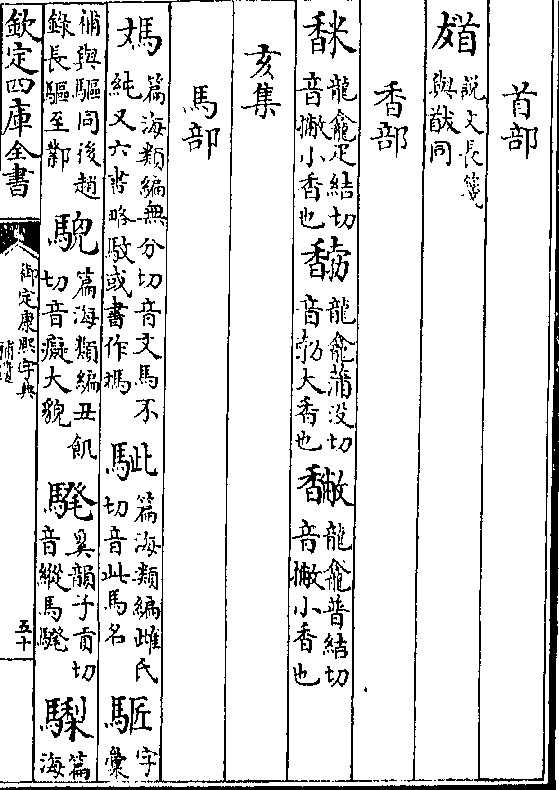 首部
説文長箋
與馘同
香部
龍龕疋結切
音撇小香也
龍龕蒲没切
音勃大香也
龍龕普結切
音撇小香也
亥集
馬部
篇海類編無分切音文馬不
純又六書略駁或書作䮄
篇海類編雌氏
切音此馬名
字
彙
補與驅同後趙
錄長驅至鄴
篇海類編丑飢
切音癡大貌
奚韻子貢切
音縱馬
篇
海
欽定四庫全書
御定康熙字典
補遺
五十